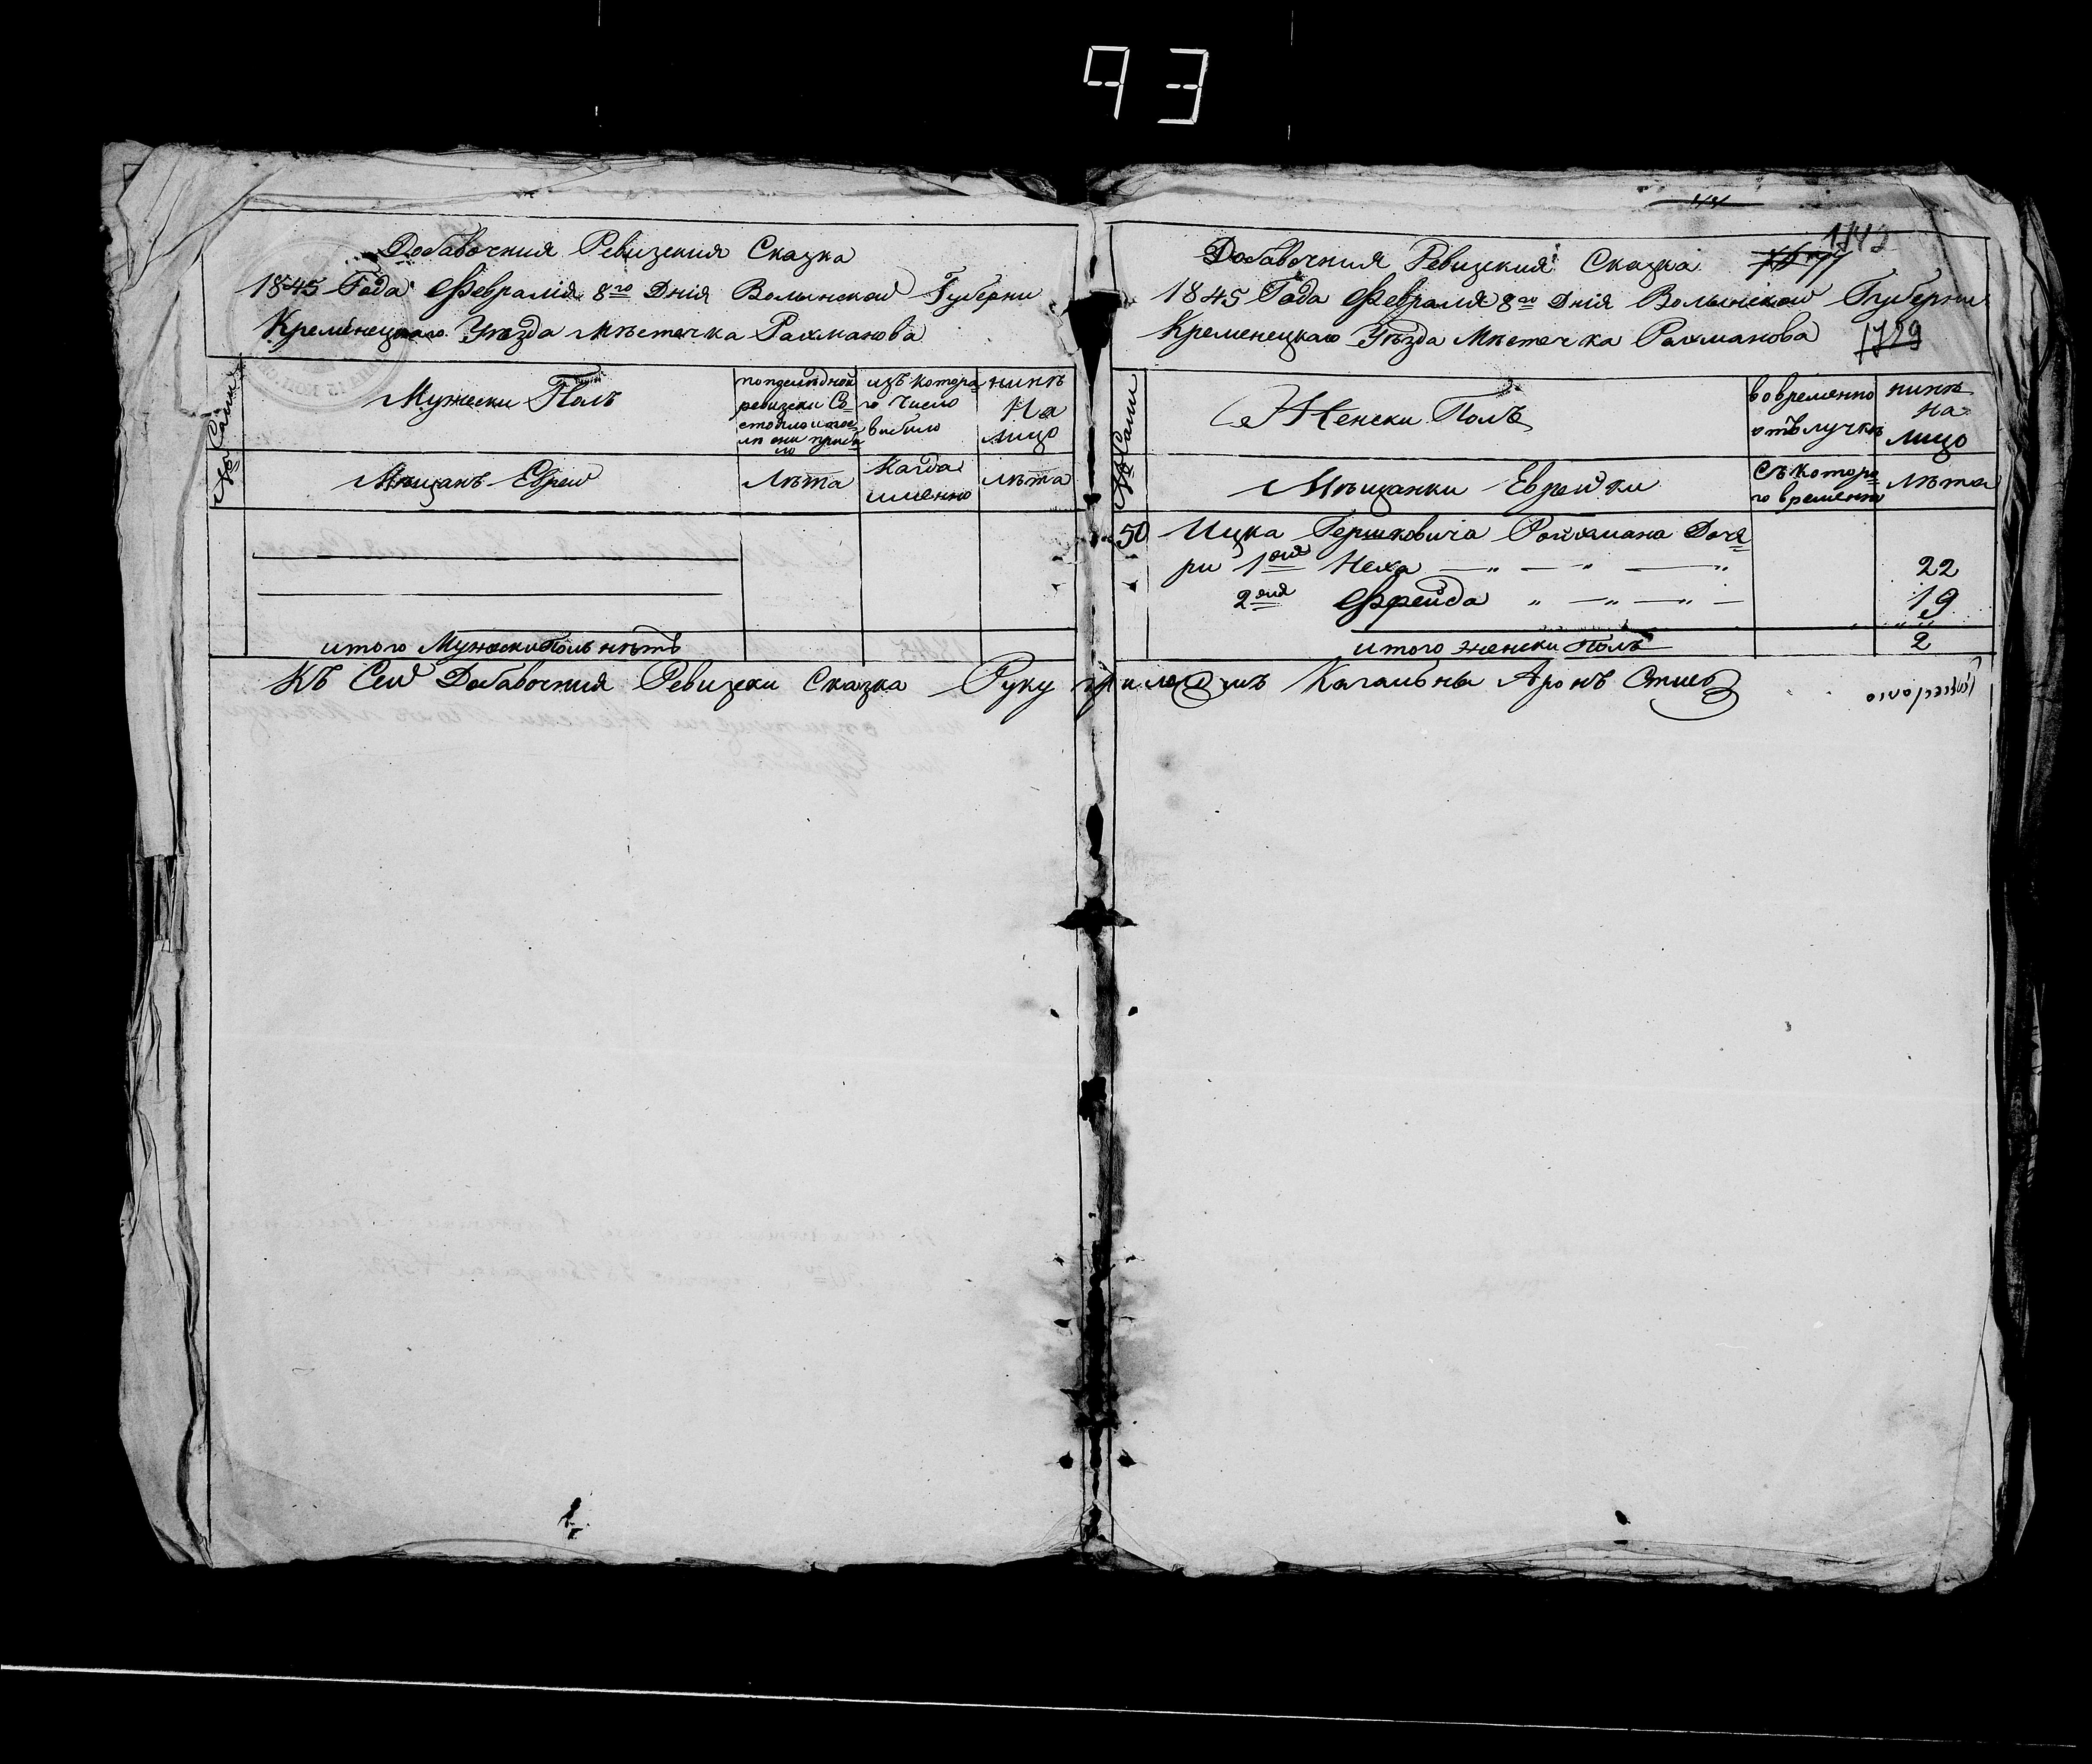 93
Добавочния Ревизския Сказка
1845 Года Февралія 8го Днія Волынской Губерни
Кременецкаго Уѣзда Мѣстечка Рахманова
№ Самі
Мужески Полъ
ревизски Со-
изъ котора-
го Число
выбыло
нинѣ
На
лицо
Мѣщанъ Евреи
Лѣта
Когда
именно
лѣта
итого Мужески Полъ нѣтъ
1742
Добавочния Ревизския Сказка
1845 Года Февралія 8го Днія Волынской Губерни
Кременецкаго Уѣзда Мѣстечка Рахманова
1729
№ Самі
Женски Полъ
во временно
отълучкѣ
нинѣ
на
лицо
Мѣщанки Еврейки
Съ которо-
го времени
Лѣта
50 Ицка Гершковича Ройхмана Доче-
ри 1ая Неха 22
2ая Фрейда 19
итого женски Полъ 2
Къ Сей Добавочния Ревизски Сказка Руку приложилъ Кагальны Аронъ